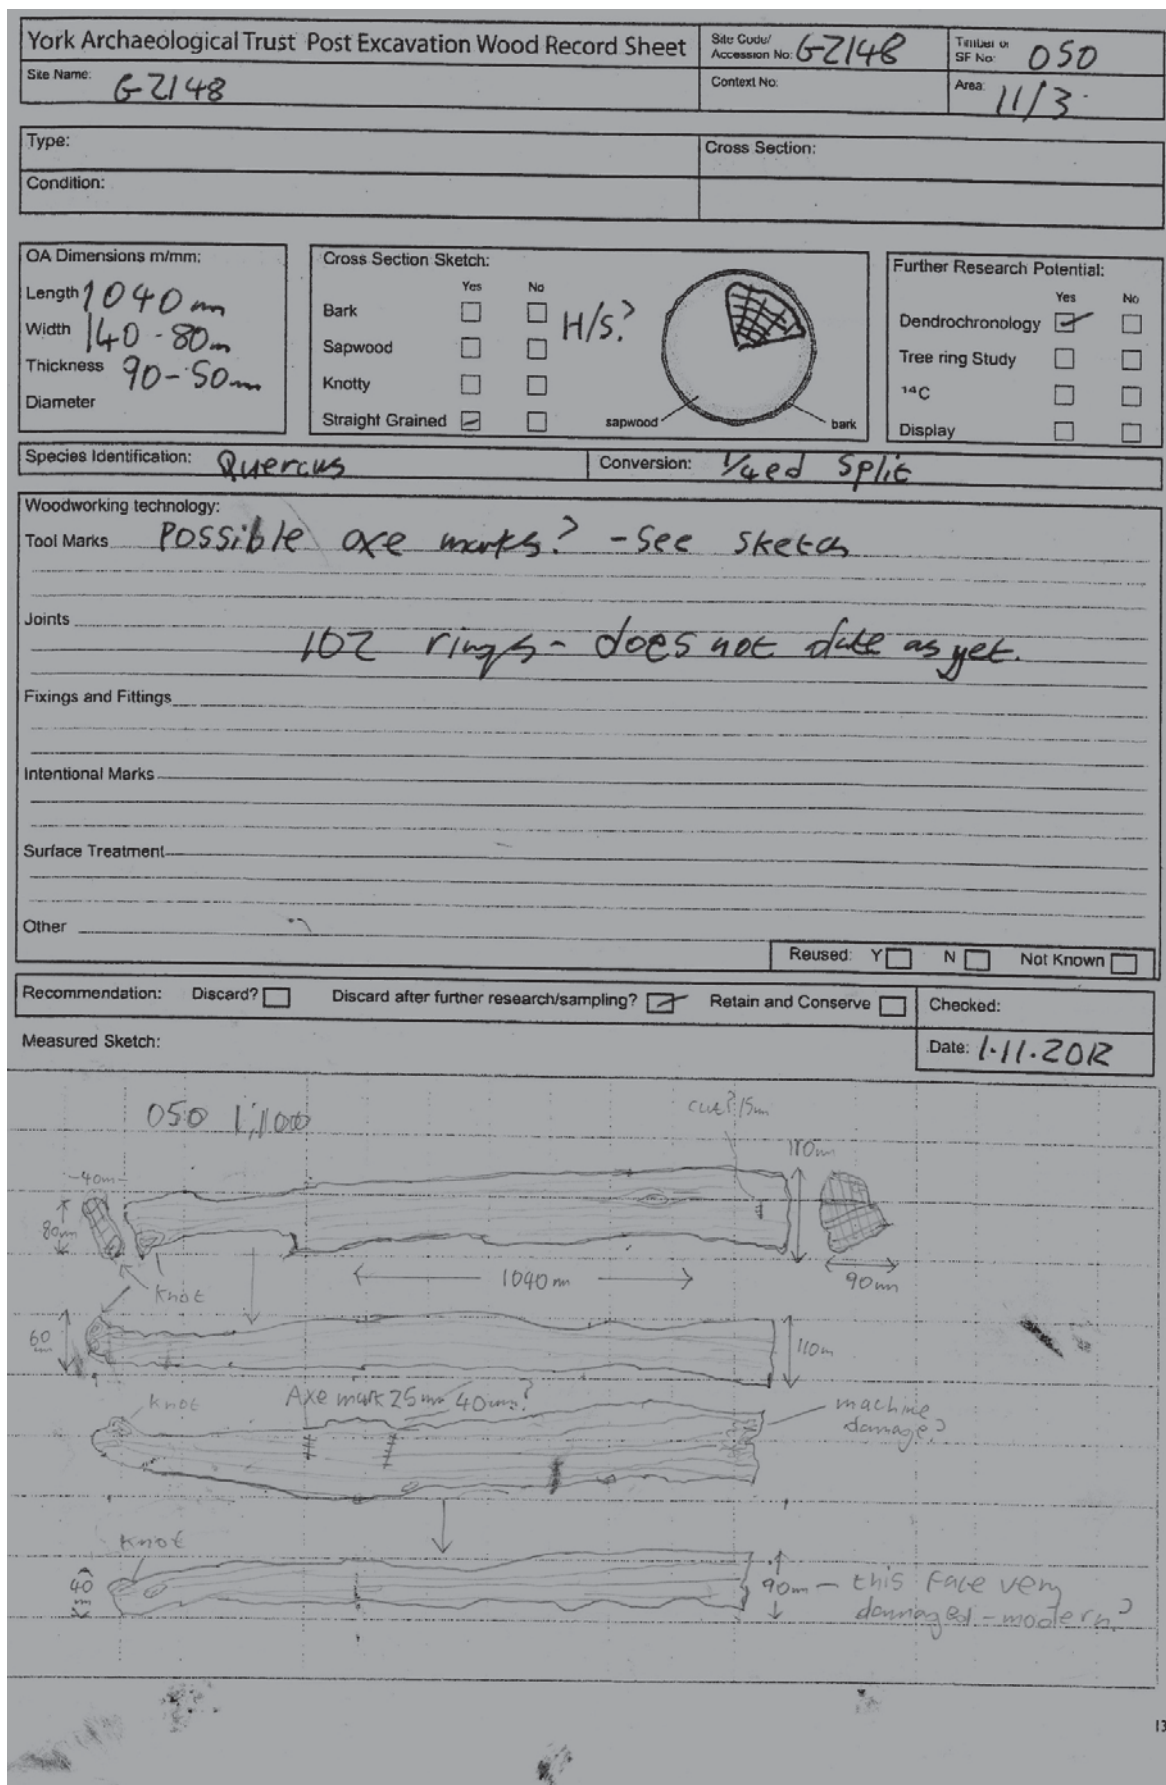 York Archaeological Trust Post Excavation Wood Record Sheet
Site Code/
Accession No: GZ148
Timber or
SF No: 050
Site Name: GZ148
Context No:
Area: 11/3
Type:
Cross Section:
Condition:
OA Dimensions m/mm:
Length 1040mm
Width 140-80m
Thickness 90-50mm
Diameter
Cross Section Sketch:
Yes No
Bark
Sapwood
Knotty
Straight Grained
H/S?
sapwood
bark
Further Research Potential:
Yes No
Dendrochronology
Tree ring Study
14C
Display
Species Identification: Quercus
Conversion: 1/4ed Split
Woodworking technology:
Tool Marks Possible axe marks? - See sketch
Joints
102 rings - does not date as yet.
Fixings and Fittings
Intentional Marks
Surface Treatment
Other
Reused: Y N Not Known
Recommendation: Discard? Discard after further research/sampling? Retain and Conserve
Checked:
Measured Sketch:
Date: 1.11.2012
050
cut? 15m
40m
80mm
110mm
1040mm
90mm
Knot
60
110m
Knot
Axe mark 25mm 40mm?
machine
damage?
Knot
40
90m - this face very
damaged - modern?
13